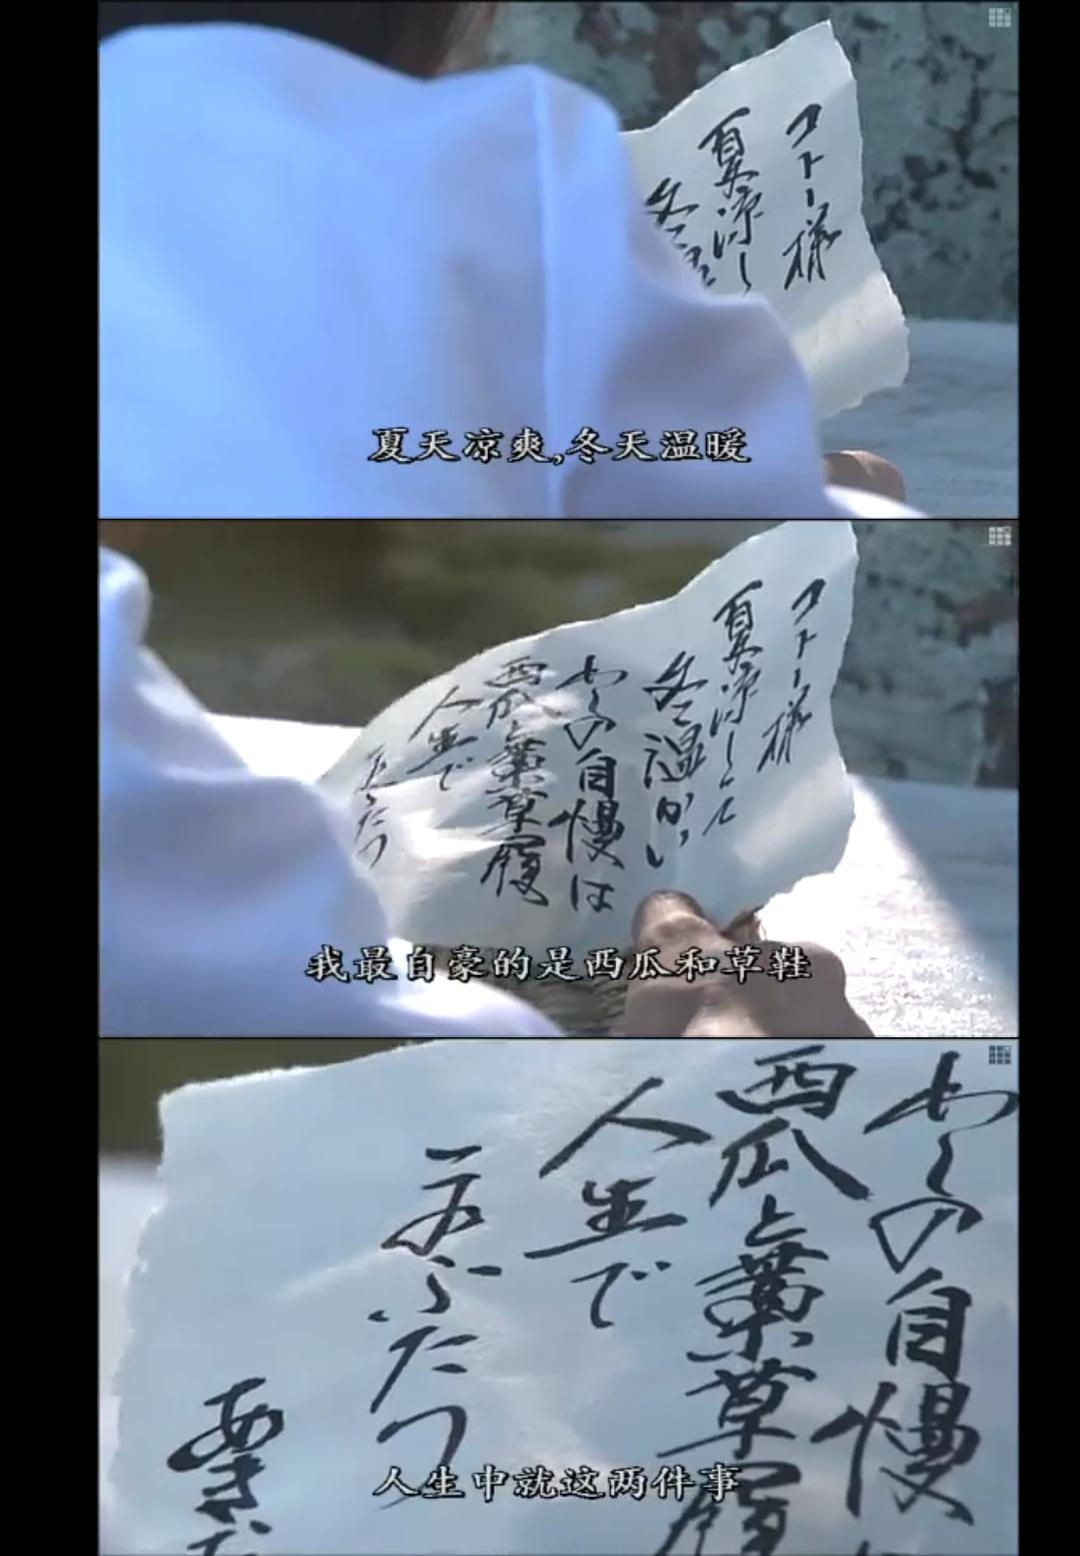 コトー様
夏涼し
冬
夏天凉爽,冬天温暖
コトー様
夏涼しくて
冬温かい
わしの自慢は
西瓜と藁草履
人生で
ふたつ
我最自豪的是西瓜和草鞋
わしの自慢は
西瓜と藁草履
人生で
ふたつ
あき
人生中就这两件事